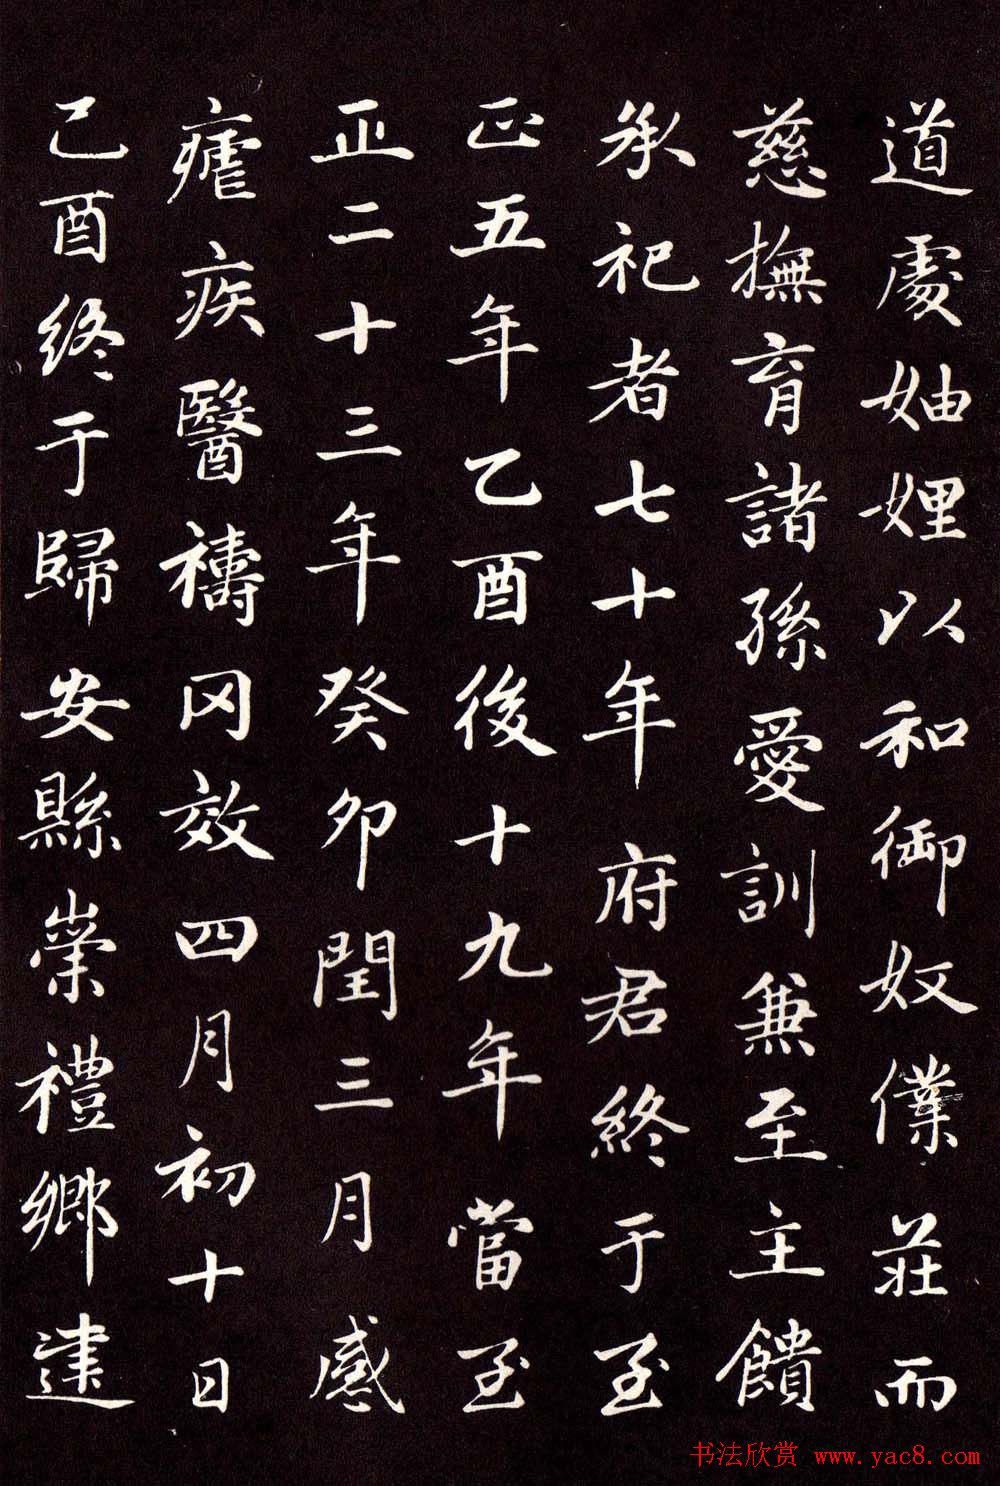 道處妯娌以和御奴僕莊而
慈撫育諸孫愛訓兼至主饋
承祀者七十年府君終于至
正五年乙酉後十九年當至
正二十三年癸卯閏三月感
瘧疾醫禱罔效四月初十日
己酉終于歸安縣崇禮鄉建
书法欣赏 www.yac8.com